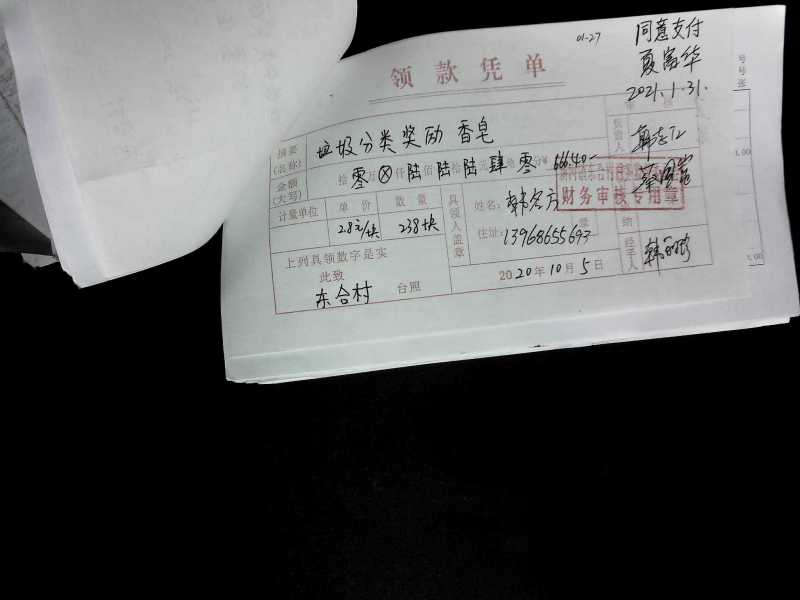 01-27
同意支付
2021.1.31.
领款凭单
摘要(名称) 垃圾分类奖励 香皂
金额(大写) 拾零万⊗仟陆佰陆拾陆元肆角零分¥ 666.40-
负责人
计量单位 单价 数量
2.8元/块 238块
具领人盖章
姓名:
住址:13968655693
财务审核专用章
经手人
上列具领数字是实
此致
东合村 台照
2020年10月5日
号
号
张